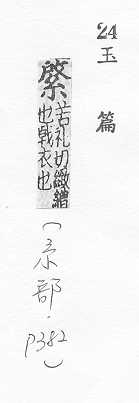 24
玉篇
綮苦礼切緻繒
也戟衣也
(糸部·P382)